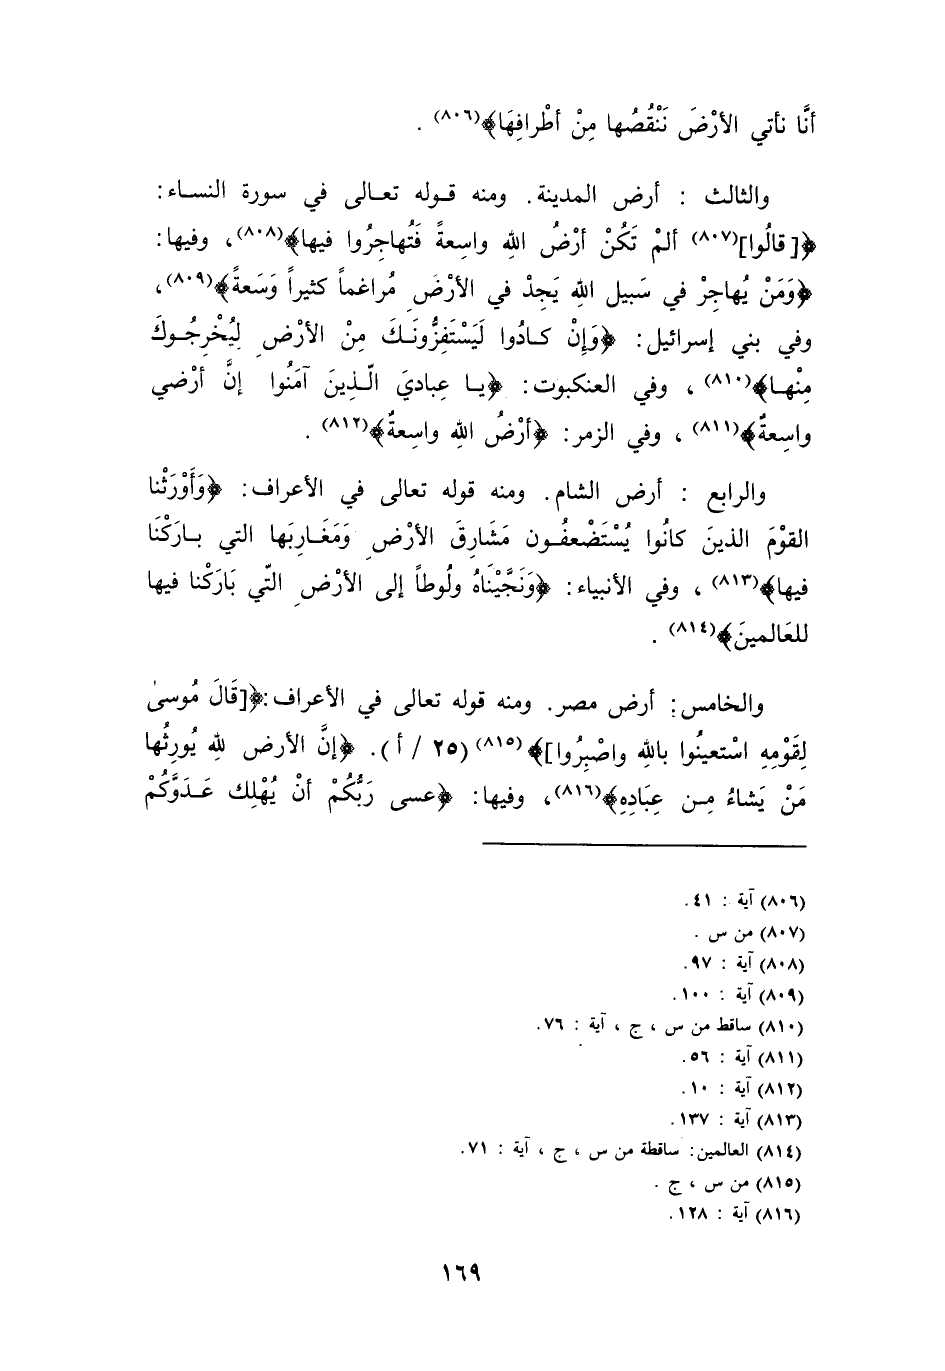 أنَّا نأتي الأرْضَ نَنْقُصُها مِنْ أطْرافِهَا﴾(٨٠٦) .
والثالث : أرض المدينة. ومنه قـوله تعـالى في سورة النسـاء:
﴿[قالُوا](٨٠٧) ألمْ تَكُنْ أرْضُ اللهِ واسِعةً فَتُهاجِرُوا فيها﴾(٨٠٨)، وفيها:
﴿وَمَنْ يُهاجِرْ في سَبيل اللهِ يَجِدْ في الأرْضِ مُراغماً كثيراً وَسَعةً﴾(٨٠٩)،
وفي بني إسرائيل: ﴿وَإنْ كـادُوا لَيَسْتَفِزُّونَـكَ مِنْ الأرْضِ لِيُخْرِجُـوكَ
مِنْهـا﴾(٨١٠) ، وفي العنكبوت: ﴿يـا عِباديَ الّـذِينَ آمَنُوا إنَّ أرْضي
واسِعةٌ﴾(٨١١) ، وفي الزمر: ﴿أرْضُ اللهِ واسِعةٌ﴾(٨١٢) .
والرابع : أرض الشام. ومنه قوله تعالى في الأعراف: ﴿وَأَوْرَثْنا
القوْمَ الذينَ كانُوا يُسْتَضْعفُـون مَشَارِقَ الأرْضِ وَمَغَـارِبَها التي بـارَكْنَا
فيها﴾(٨١٣) ، وفي الأنبياء: ﴿وَنَجَّيْنَاهُ ولُوطاً إلى الأرْضِ التّي بَارَكْنا فيها
للعَالمينَ﴾(٨١٤) .
والخامس: أرض مصر. ومنه قوله تعالى في الأعراف:﴿[قَالَ مُوسىٰ
لِقَوْمِهِ اسْتعينُوا باللهِ واصْبِرُوا]﴾(٨١٥) (٢٥ / أ ). ﴿إنَّ الأرض للهِ يُورِثُها
مَنْ يَشاءُ مِـن عِبَادِهِ﴾(٨١٦)، وفيها: ﴿عسى رَبُّكُمْ أنْ يُهْلِك عَـدَوَّكُمْ
(٨٠٦) آية : ٤١.
(٨٠٧) من س .
(٨٠٨) آية : ٩٧.
(٨٠٩) آية : ١٠٠.
(٨١٠) ساقط من س ، ج ، آية : ٧٦.
(٨١١) آية : ٥٦.
(٨١٢) آية : ١٠.
(٨١٣) آية : ١٣٧.
(٨١٤) العالمين: ساقطة من س ، ج ، آية : ٧١.
(٨١٥) من س ، ج .
(٨١٦) آية : ١٢٨.
١٦٩